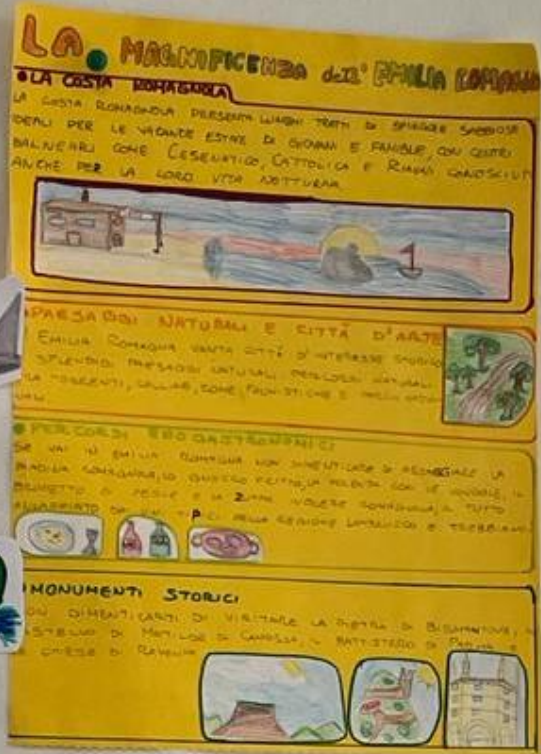 LA MAGNIFICENZA dell' EMILIA ROMAGNA
LA COSTA ROMAGNOLA
LA COSTA ROMAGNOLA PRESENTA LUNGHI TRATTI DI SPIAGGE SABBIOSE
IDEALI PER LE VACANZE ESTIVE DI GIOVANI E FAMIGLIE, CON CENTRI
BALNEARI COME CESENATICO, CATTOLICA E RICCIONE CONOSCIUTI
ANCHE PER LA LORO VITA NOTTURNA
PAESAGGI NATURALI E CITTÀ D'ARTE
EMILIA ROMAGNA VANTA CITTÀ D'INTERESSE STORICO
SPLENDIDI PAESAGGI NATURALI PERCORSI NATURALI
PERCORSI ENOGASTRONOMICI
SE VAI IN EMILIA ROMAGNA NON DIMENTICARE DI ASSAGGIARE LA
PIADINA ROMAGNOLA, LO GNOCCO FRITTO, LA POLENTA CON LE VONGOLE, IL
BRODETTO DI PESCE E LA ZUPPA INGLESE ROMAGNOLA, IL TUTTO
DELLA REGIONE LAMBRUSCO E TREBBIANO
MONUMENTI STORICI
NON DIMENTICARTI DI VISITARE LA PIETRA DI BISMANTOVA, IL
CASTELLO DI MATILDE DI CANOSSA, IL BATTISTERO DI PARMA E
CHIESE DI RAVENNA